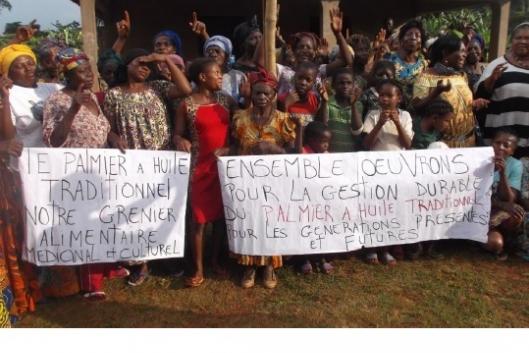 LE PALMIER A HUILE
TRADITIONNEL
NOTRE GRENIER
ALIMENTAIRE
MEDICINAL & CULTUREL
ENSEMBLE OEUVRONS
POUR LA GESTION DURABLE
DU PALMIER A HUILE TRADITIONNEL
POUR LES GENERATIONS PRESENTES
ET FUTURES